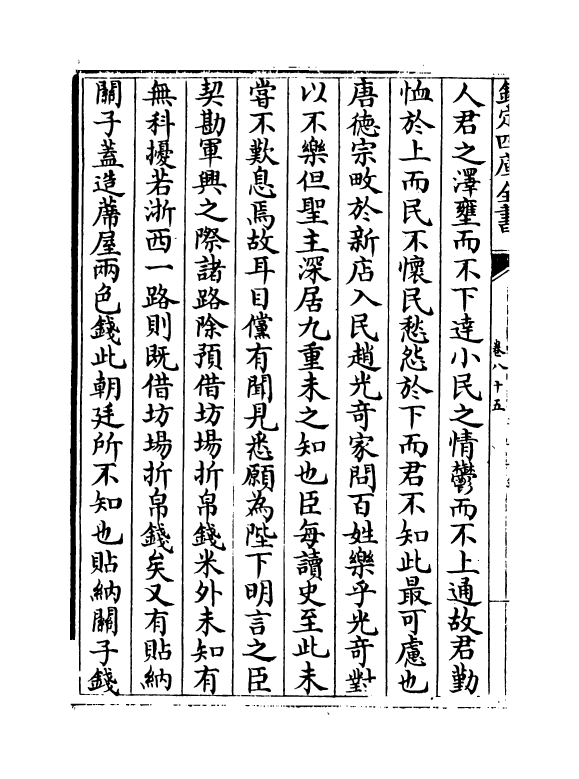 欽定四庫全書
卷八十五
人君之澤壅而不下達小民之情鬱而不上通故君勤
恤於上而民不懷民愁怨於下而君不知此最可慮也
唐德宗畋於新店入民趙光竒家問百姓樂乎光竒對
以不樂但聖主深居九重未之知也臣每讀史至此未
嘗不歎息焉故耳目儻有聞見悉願為陛下明言之臣
契勘軍興之際諸路除預借坊場折帛錢米外未知有
無科擾若浙西一路則既借坊場折帛錢矣又有貼納
關子蓋造蓆屋兩色錢此朝廷所不知也貼納關子錢